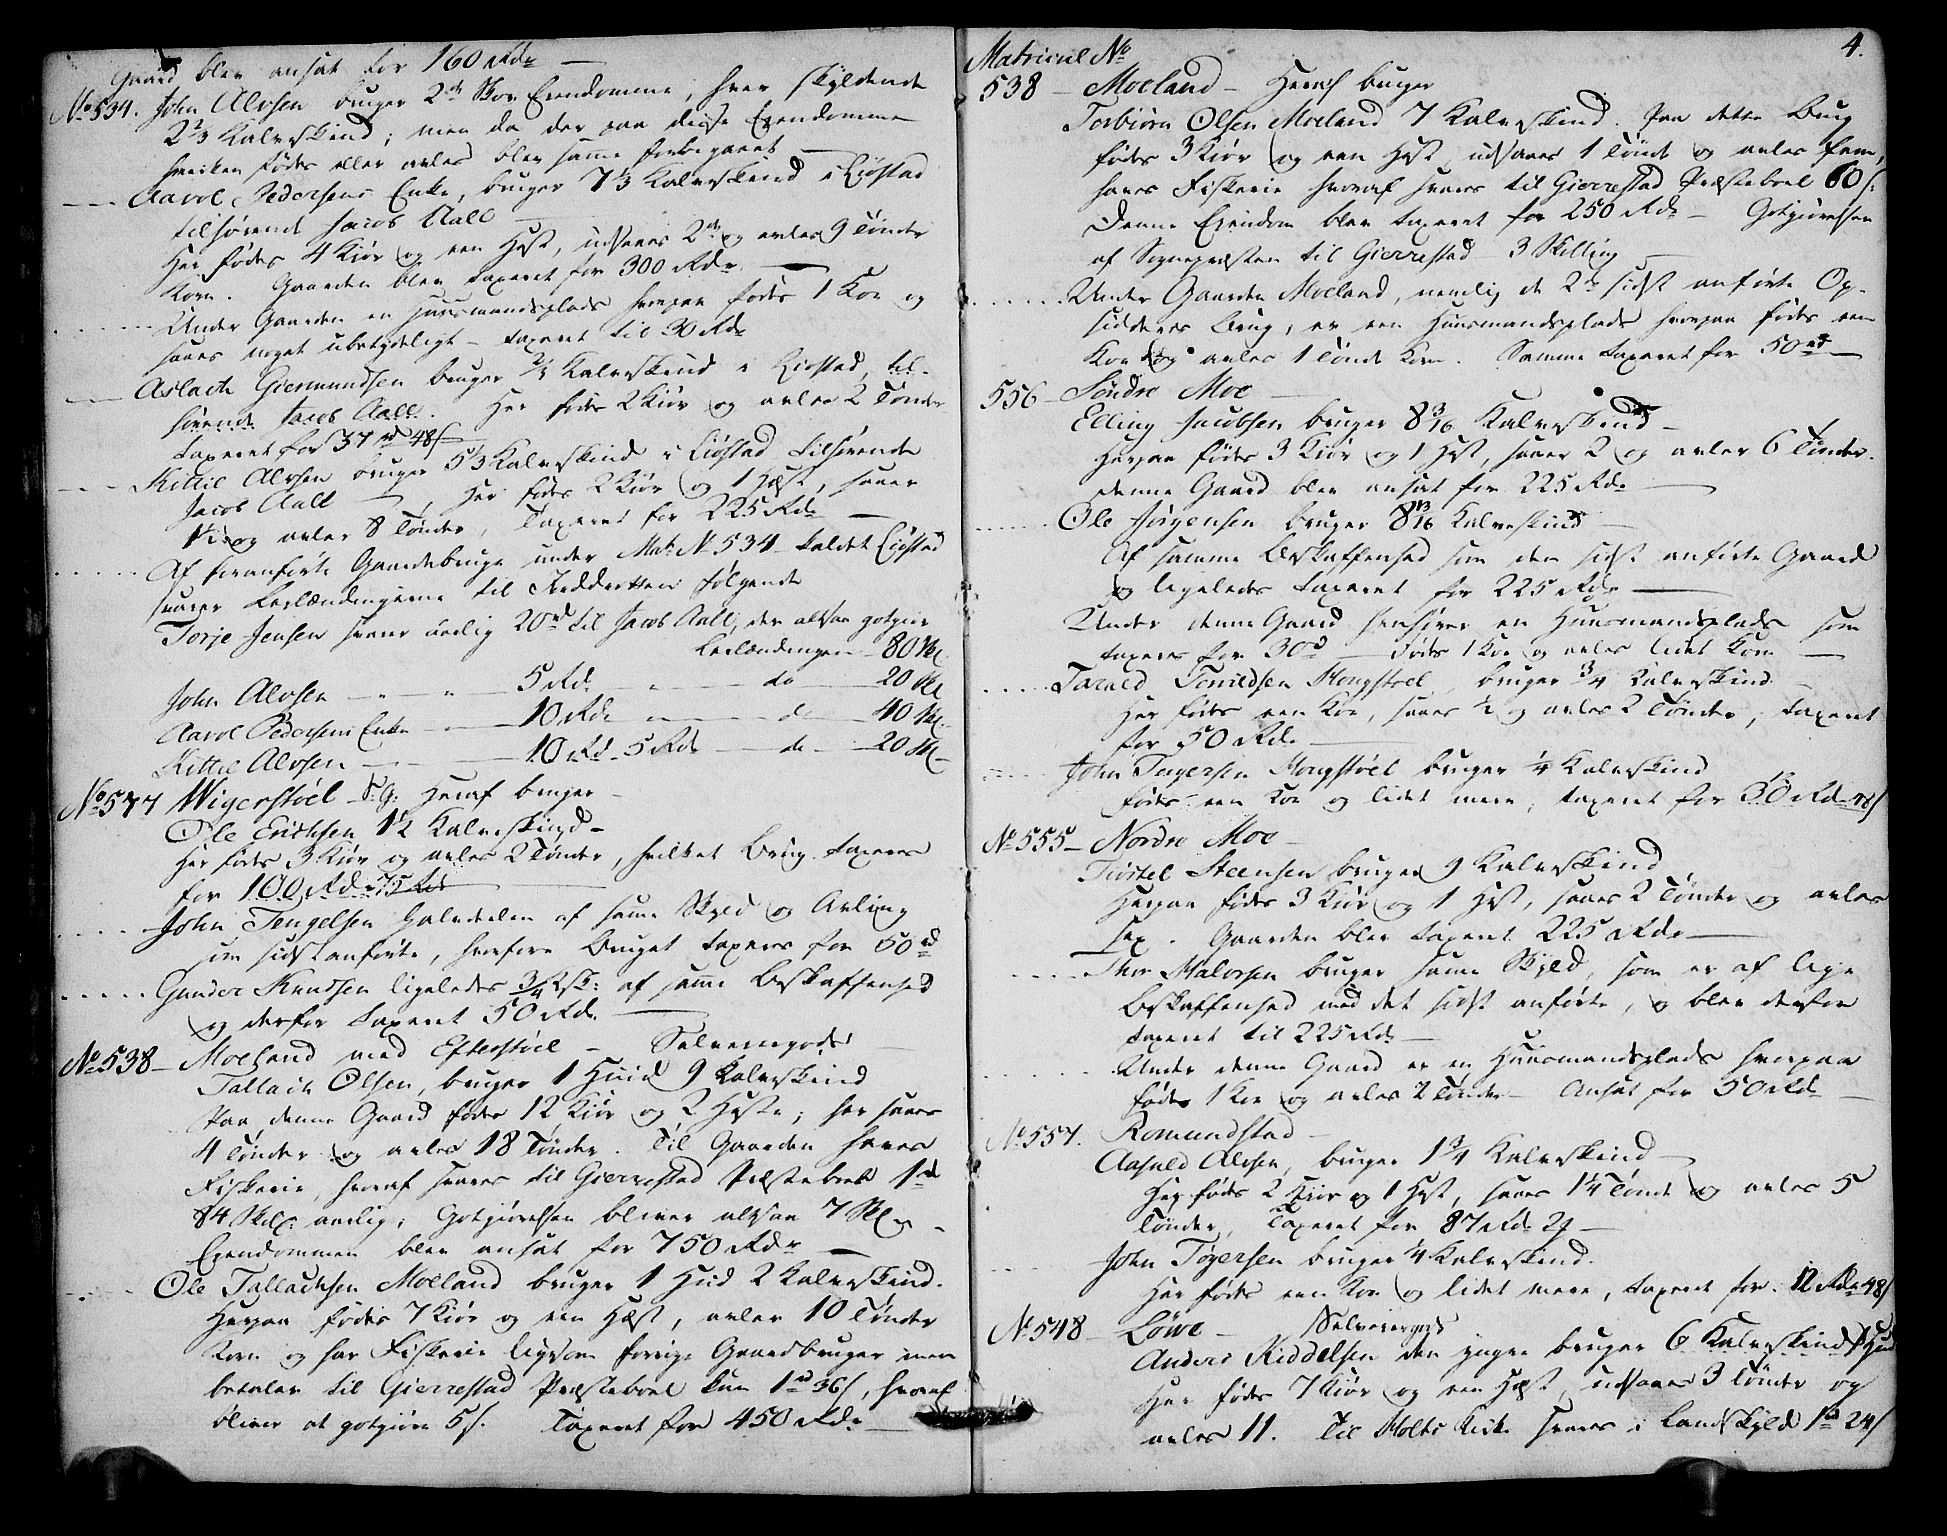 Gaard blev ansat for 160 Rdr —
No 534. John Alvsen bruger 2de Skov Eiendomme, hver skyldende
2 2/3 Kalvskind; men da der paa disse Eiendomme
hverken födes eller avles blev samme forbigaaet —
Aavol Pedersens Enke, bruger 7 1/3 Kalveskind i Lióstad
tilhörende Jacob Aall —
Her födes 4 Kiör og een Hest, udsaaes 2de og avles 9 Tönder
Korn. Gaarden blev taxeret for 300 Rdr —
Under Gaarden en Huusmandsplads hvorpaa födes 1 Koe og
saaes noget ubetydeligt — taxeret til 30 Rdr
Aslach Giermundsen bruger 2/3 Kalveskind i Lióstad, til-
hörende Jacob Aall. Her födes 2 Kiör og avles 2 Tönder
taxeret for 37 rd 48 s —
Kittil Alvsen bruger 5 1/3 Kalveskind i Lióstad tilhörende
Jacob Aall —, Her födes 2 Kiör og 1 Hest, saaes
og avles 8 Tönder, Taxeret for 225 Rdr —
Af foranförte Gaardebruge under Mat: No 534 kaldet Lióstad
svarer Leilændingerne til Jorddrotten fölgende
Torje Jensen svarer aarlig 20 rd til Jacob Aall, der altsaa gotgiör
Leilændingen — 80 Sk.
John Alvsen — 5 Rd. — do — 20 Sk
Aavol Pedersens Enke — 10 Rdr — do — 40 Sk.
Kittil Alvsen — 10 Rd. 5 Rdr — do — 20 Sk —
No 577 Wigerstöel S: G: Heraf bruger —
Ole Erichsen 1 1/2 Kalveskind —
Her födes 3 Kiör og avles 2 Tönder, hvilket Brug taxeres
for 100 Rdr 75 Rdr
John Tengelsen Halvdelen af samme Skyld og Avling
som sidst anförte, hvorfore Bruget taxeres for 50 rd
Gunder Knudsen ligeledes 3/4 Ksk: af samme Beskaffenhed
og derfor taxeret 50 Rdr. —
No 538 — Moeland med Efterstöel — Selveiergods
Tallach Olsen, bruger 1 Huid 9 Kalveskind
Paa denne Gaard födes 12 Kiör og 2 Heste; her saaes
4 Tönder og avles 18 Tönder. Til Gaarden haves
Fiskerie, hvoraf svares til Gierrestad Præstebord 1 rd
84 Skl: aarlig; Gotgiörelsen bliver altsaa 7 Sk
Eiendommen blev ansat for 750 Rdr —
Ole Tallachsen Moeland bruger 1 Hud 2 Kalveskind.
Herpaa födes 7 Kiör og een Hest, avler 10 Tönder
Korn og har Fiskerie ligesom forrige Gaardbruger men
betaler til Gierrestad Præstebord kun 1 rd 36 s, hvoraf
bliver at gotgiöre 5 s. Taxeret for 450 Rdr —
4.
Matricul No
538 — Moeland — Heraf bruger
Torbiörn Olsen Moeland 7 Kalveskind. Paa dette Brug
födes 3 Kiör og een Hest, udsaaes 1 Tönde og avles fem,
haves Fiskerie hvoraf svares til Gierrestad Præstebord 60 s.
Denne Eiendom blev taxeret for 250 Rdr — Gotgiörelsen
af Sognepræsten til Gierrestad 3 Skilling —
Under Gaarden Moeland, nemlig de 2de sidst anförte Op-
sidderes Brug, er een Huusmandsplads hvorpaa födes een
Koe og avles 1 Tönde Korn. Samme taxeret for 50 rd —
556 — Söndre Moe —
Elling Jacobsen bruger 8 3/16 Kalveskind —
Herpaa födes 3 Kiör og 1 Hest, saaer 2 og avler 6 Tönder.
denne Gaard blev ansat for 225 Rdr —
Ole Jörgensen bruger 8 13/16 Kalveskind —
Af samme Beskaffenhed som den sidst anförte Gaard
og ligeledes taxeret for 225 Rdr —
Under denne Gaard henhörer en Huusmandsplads som
taxeres for 30 rd — Födes 1 Koe og avles lidet Korn —
Tarald Tonildsen Hougstoel, bruger 3/4 Kalveskind
Her födes een Koe, saaes 1/2 og avles 2 Tönder, taxeret
for 50 Rdr —
John Tegersen Hougstöel bruger 1/4 Kalveskind
födes een Koe og lidet mere, taxeret for
No 555 — Nordre Moe —
Tiostel Steensen bruger 9 Kalveskind
Herpaa födes 3 Kiör og 1 Hest, saaes 2 Tönder og avles
sex. Gaarden blev taxeret 225 Rdr —
Thor Halvorsen bruger samme Skyld, som er af lige
Beskaffenhed med det sidst anförte, og blev derfor
taxeret til 225 Rdr —
Under denne Gaard er en Huusmandsplads hvorpaa
födes 1 Koe og avles 2 Tönder — Ansat for 50 Rdr —
No 557. Romundstad —
Aasuld Alvsen, bruger 1 3/4 Kalveskind —
Her födes 2 Kiör og 1 Hest, saaes 1 1/4 Tönde og avles 5
Tönder, Taxeret for 87 Rdr
John Tögersen bruger 1/4 Kalveskind.
Her födes een Koe og lidet mere, taxeret for 12 Rdr 48 s
No 548 — Löwe — Selveiergods
Anders Kiddelsen den yngre bruger 6 Kalveskind 1 Hud
Her födes 7 Kiör og een Hest, udsaaes 3 Tönder og
avles 11. Til Holts Kirke svares i Landskyld 1 rd 24 s